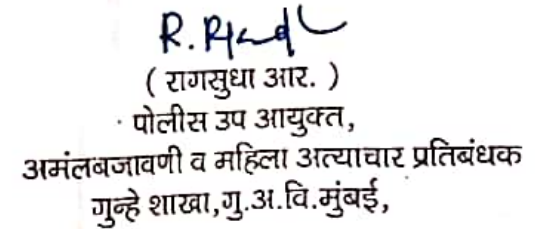 ( रागसुधा आर. )
पोलीस उप आयुक्त,
अमंलबजावणी व महिला अत्याचार प्रतिबंधक
गुन्हे शाखा,गु.अ.वि.मुंबई,